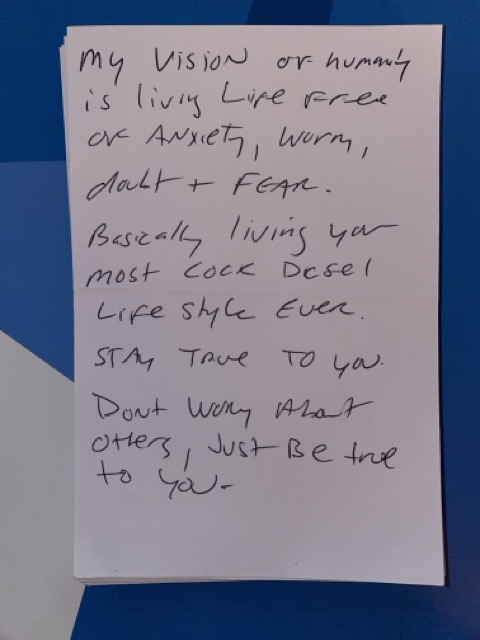 My Vision of humanity
is living Life Free
of Anxiety, Worry,
doubt + FEAR.
Basically living your
most Cock Desel
Life style Ever.
STAY TRUE TO you.
Dont Worry About
others, Just Be true
to you.